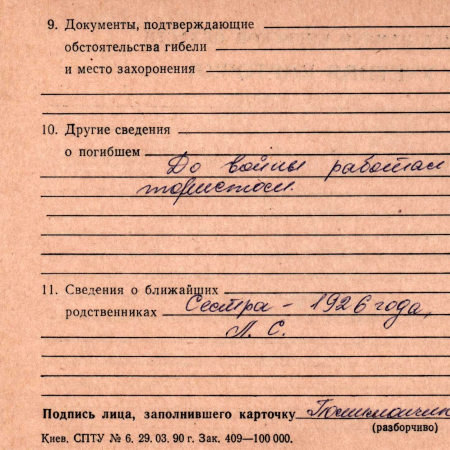 9. Документы, подтверждающие
обстоятельства гибели
и место захоронения
10. Другие сведения
о погибшем
До войны работал
11. Сведения о ближайших
родственниках Сестра - 1926 года,
Л. С.
Подпись лица, заполнившего карточку
(разборчиво)
Киев. СПТУ № 6. 29. 03. 90 г. Зак. 409—100 000.